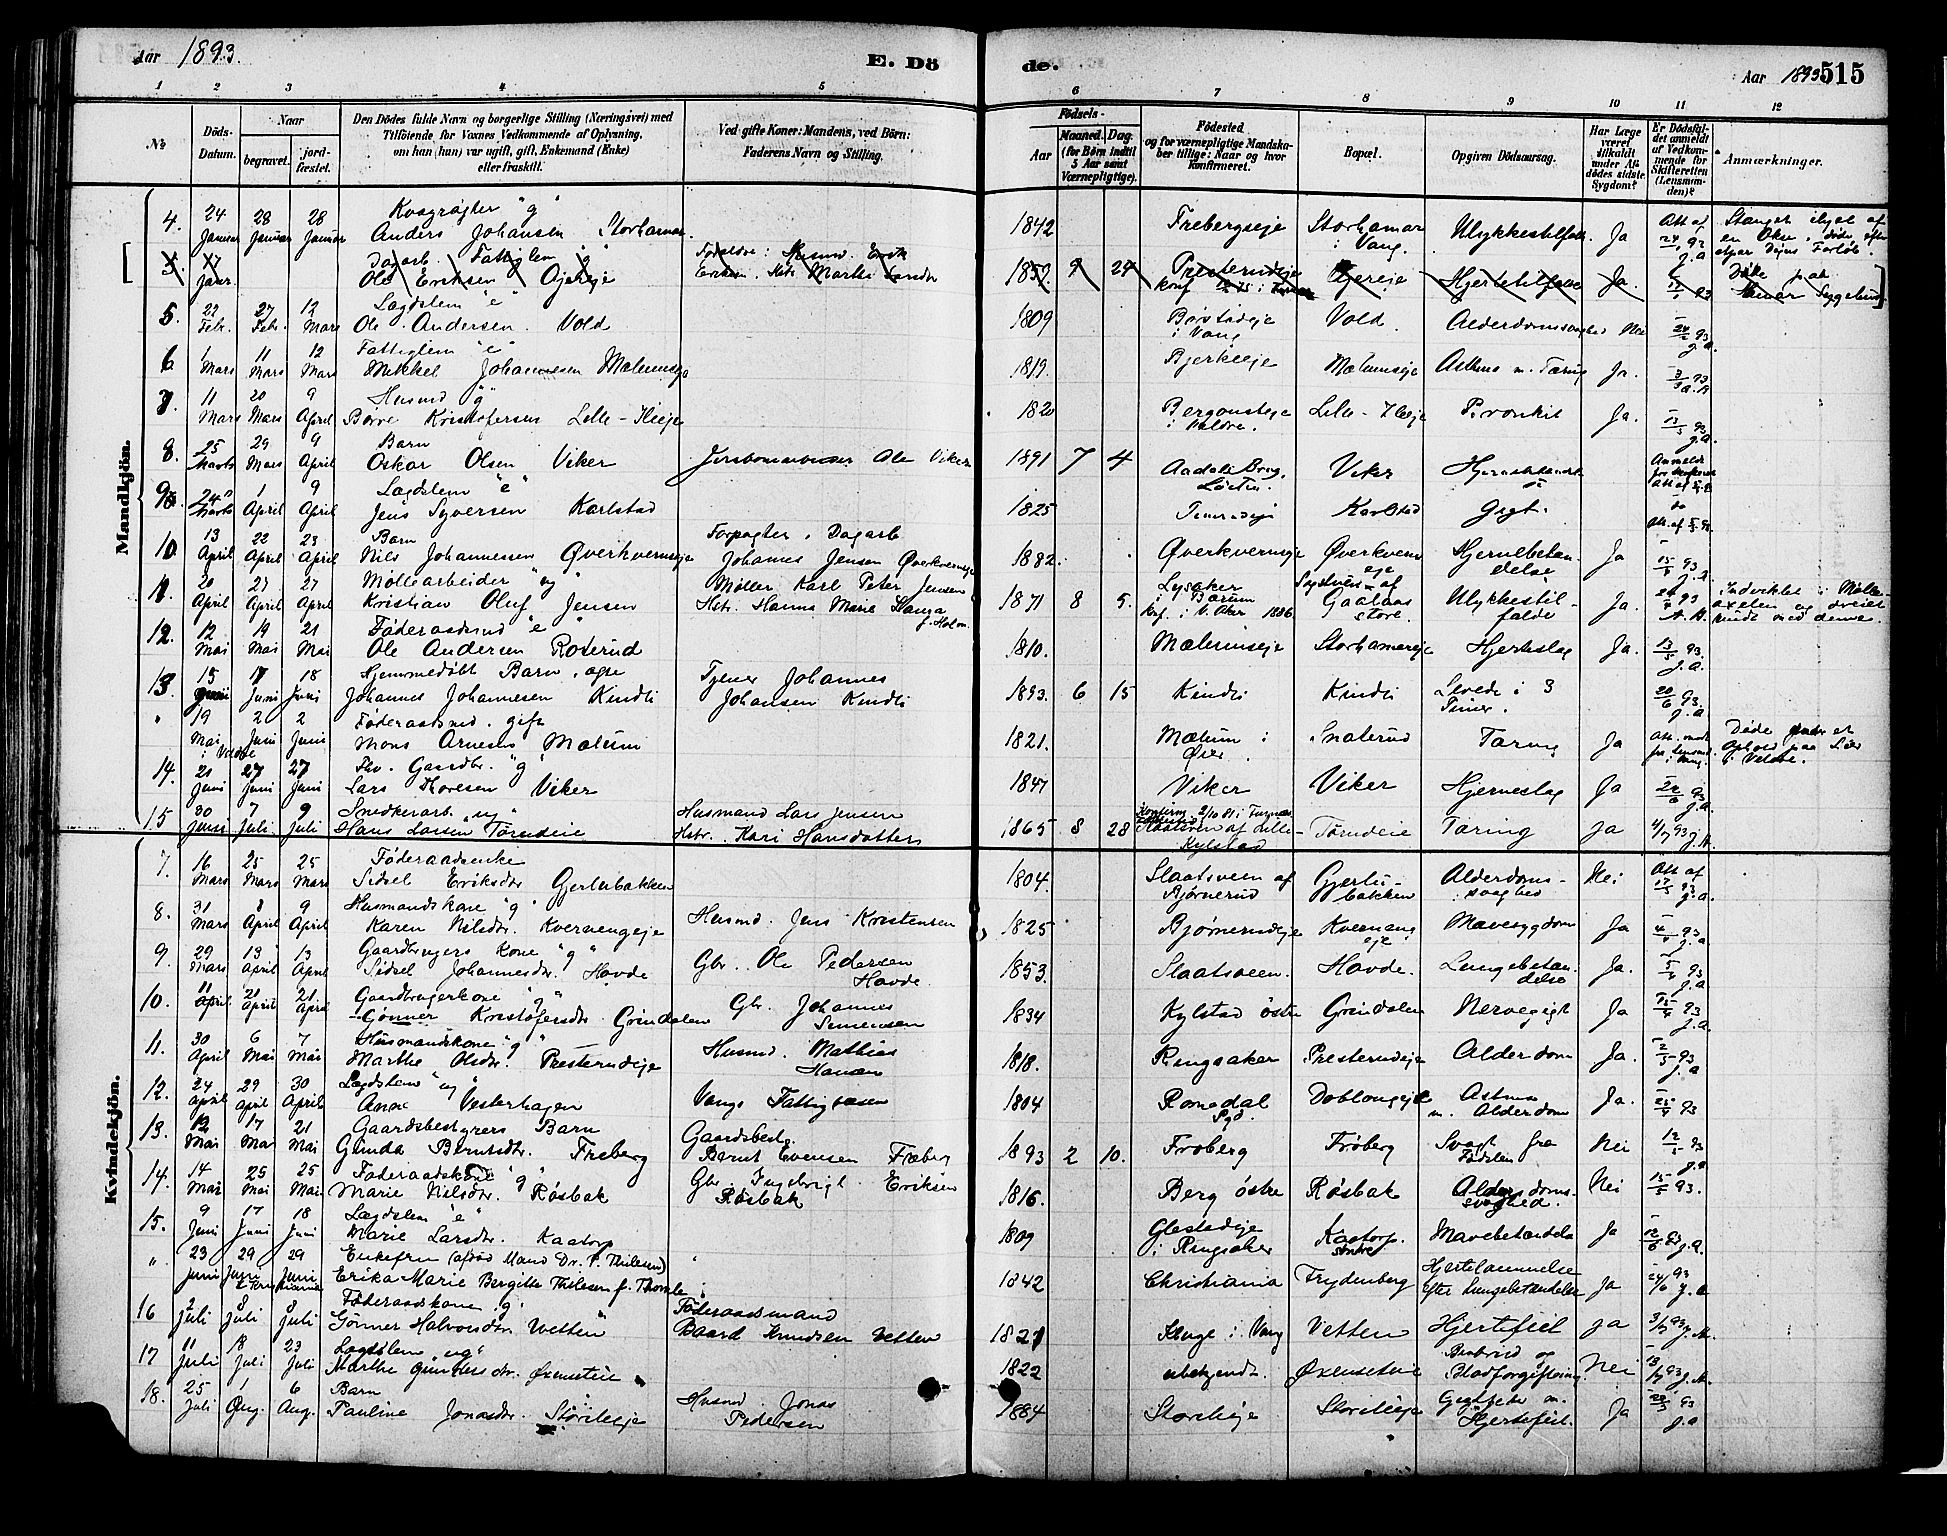 Aar 1893. E. Dö de. Aar 1893 515
1 2 3 4 5 6 7 8 9 10 11 12
No.
Döds-Datum.
Naar
begravet.
jordfæstet.
Den Dödes fulde Navn og borgerlige Stilling (Næringsvei) med
Tilföiende for Voxnes Vedkommende af Oplysning,
om han (hun) var ugift, gift, Enkemand (Enke)
eller fraskilt.
Ved gifte Koner: Mandens, ved Börn:
Faderens Navn og Stilling.
Födsels-
Aar
Maaned. Dag.
(for Börn indtil
5 Aar samt
Værnepligtige).
Födested
og for værnepligtige Mandskaber tillige: Naar og hvor
konfirmeret.
Bopæl.
Opgiven Dödsaarsag.
Har Læge
været
tilkaldt
under Afdödes sidste
Sygdom?
Er Dödsfaldet anmeldt
af Vedkommende for
Skifteretten
(Lensmanden)?
Anmærkninger.
Mandkjön.
4. 24 Januar 28 Januar 28 Januar Kvægrøgter "g" Anders Johansen Storhamar 1842 Frebergseje Storhamar i Vang Ulykkestilfælde Ja
Stanget ihjel af en Okse
Dagarb. Fattiglem "g" Ole Eriksen 1852 9 24 Hjertetilfælde Ja.
5. 22 Febr. 27 Febr. 12 Mars Lægdslem "e" Ole Andersen Vold 1809 i Vang Vold. Alderdomssvaghed Nei
6 1 Mars 11 Mars 12 Mars Fattiglem "e" Mikkel Johannessen Mælumseje 1819. Bjerkeeje Mælumseje Asthma m. Tæring Ja.
7 11 Mars 20 Mars 9 April Husmd "g" Børre Kristofersen Lille-Hleeje 1820 i Veldre. Bronkit Ja.
8. 25 Marts 29 Mars 9 April Barn Oskar Olsen Viker Jernbanearbeider Ole Viker 1891 7 4 Aadals Brug Løiten. Viker
9. 24 Marts 1 April 9 April Lægdslem "e" Jens Syversen Karlstad 1825 Karlstad Gigt.
10 13 April 22 April 23 April Barn Nils Johannessen Øverkvernseje Forpagter, Dagarb Johannes Jensen Øverkvernseje 1882. Øverkvernseje Øverkvernseje Hjernebetændelse Ja
11. 20 April 27 April 27 April Møllearbeider "ug" Kristian Oluf Jensen Møller Karl Peter Jensen Hstr. Hanna Marie 1871 8 5. Lysaker i Bærum Konf. i V. Aker 1886. Gaalaas store. Ulykkestilfælde Ja.
Indviklet i Mølleaxelen og dreiet rundt med denne.
12. 12 Mai 19 Mai 21 Mai Føderaadsmd "e" Ole Andersen Roterud 1810. Mælumseje Storhamareje Hjerteslag Ja.
13 15 Juni 17 Juni 18 Juni Hjemmedøbt Barn, ægte Johannes Johannesen Kindli Tjener Johannes Johansen Kindli 1893. 6 15 Kindli Kindli Levede i 3 Timer.
" 19 Mai i Veldre 2 Juni 2 Juni Føderaadsmd. gift Mons Arnesen Mælum 1821. Mælum i Øier. Snaterud Tæring Ja
14. 21 Juni 27 Juni 27 Juni Fhv. Gaardbr. "g" Lars Toresen Viker 1847 Viker Viker Hjerneslag Ja
15 30 Juni 7 Juli 9 Juli Snedkerarb. "ug" Hans Larsen Tørudeie Husmand Lars Jensen Hstr. Kari Hansdatter 1865 8 28 Konfirm. 2/10 81 i Furnes Slaatsveen af Lille-Kylstad Tørudeie Tæring ja
Kvindekjön.
7. 16 Mars 25 Mars 25 Mars Føderaadsenke Sidsel Eriksdr. Gjerlubakken 1804. Slaatsveen af Bjørnerud Gjerlubakken Alderdomssvaghed Nei
8. 31 Mars 8 April 9 April Husmandskone "g" Karen Nilsdr. Kvernengeje Husmd. Jens Kristensen 1825 Bjørnerudeje Kvernengeje Mavesygdom Ja
9. 29 Mars 13 April 13 April Gaardbrugers Kone "g" Sidsel Johannesdr. Hovde Gbr. Ole Pedersen Hovde. 1853. Slaatsveen. Hovde. Lungebetændelse Ja.
10. 11 April 21 April 21 April Gaardbrugerkone "g" Gønner Kristofersdr. Grindalen Gbr. Johannes Simensen 1834 Kylstad østre Grindalen Nervegigt Ja
11. 30 April 6 Mai 7 Mai Husmandskone "g" Marthe Olsdr. Presterudeje Husmd. Mathias Hansen 1818. Ringsaker Presterudeje Alderdom Ja.
12. 24 April 29 April 30 April Lægdslem "ug" Anne Vesterhagen Vangs Fattigvæsen 1804 Romedal Doblougeje Astma m. Alderdom Ja.
13. 12 Mai 17 Mai 21 Mai Gaardsbestyrers Barn Gunda Berntsdr. Freberg Gaardsbest. Bernt Evensen Freberg 1893 2 10. Frøberg Frøberg Svagt fra Fødslen Nei
14. 14 Mai 25 Mai 25 Mai Føderaadskone "g" Marie Nilsdr. Røsbak Gbr. Ingebrigt Eriksen Røsbak 1816. Berg østre Røsbak Alderdomssvaghed. Nei
15. 9 Juni 17 Juni 18 Juni Lægdslem "e" Marie Larsdr. Kaatorp 1809 i Ringsaker Kaatorp søndre Mavebetændelse Ja
" 23 Juni 29 Juni 29 Juni Enkefru (afdød Mand Dr. P. Thilesen) Erika Marie Bergitte Thilesen f. Thomle 1842 Christiania Frydenberg Hjertelammelse efter Lungebetændelse Ja
16 2 Juli 8 Juli 8 Juli Føderaadskone "g" Gønner Halvorsdr. Vetten Føderaadsmand Baard Knudsen Vetten 1821 i Vang Vetten Hjertefeil ja
17 11 Juli 18 Juli 23 Juli Lægdslem "ug" Marthe Gundersdr. Øxenseteie 1822 ubekjendt. Øxenseteie Benbrud og Blodforgiftning. Nei
18. 25 Juli 1 Aug. 6 Aug. Barn Pauline Jonasdr. Storileje Husmd. Jonas Pedersen 1884 Storileje Storileje Gigtfeber m. Hjertefeil. Ja